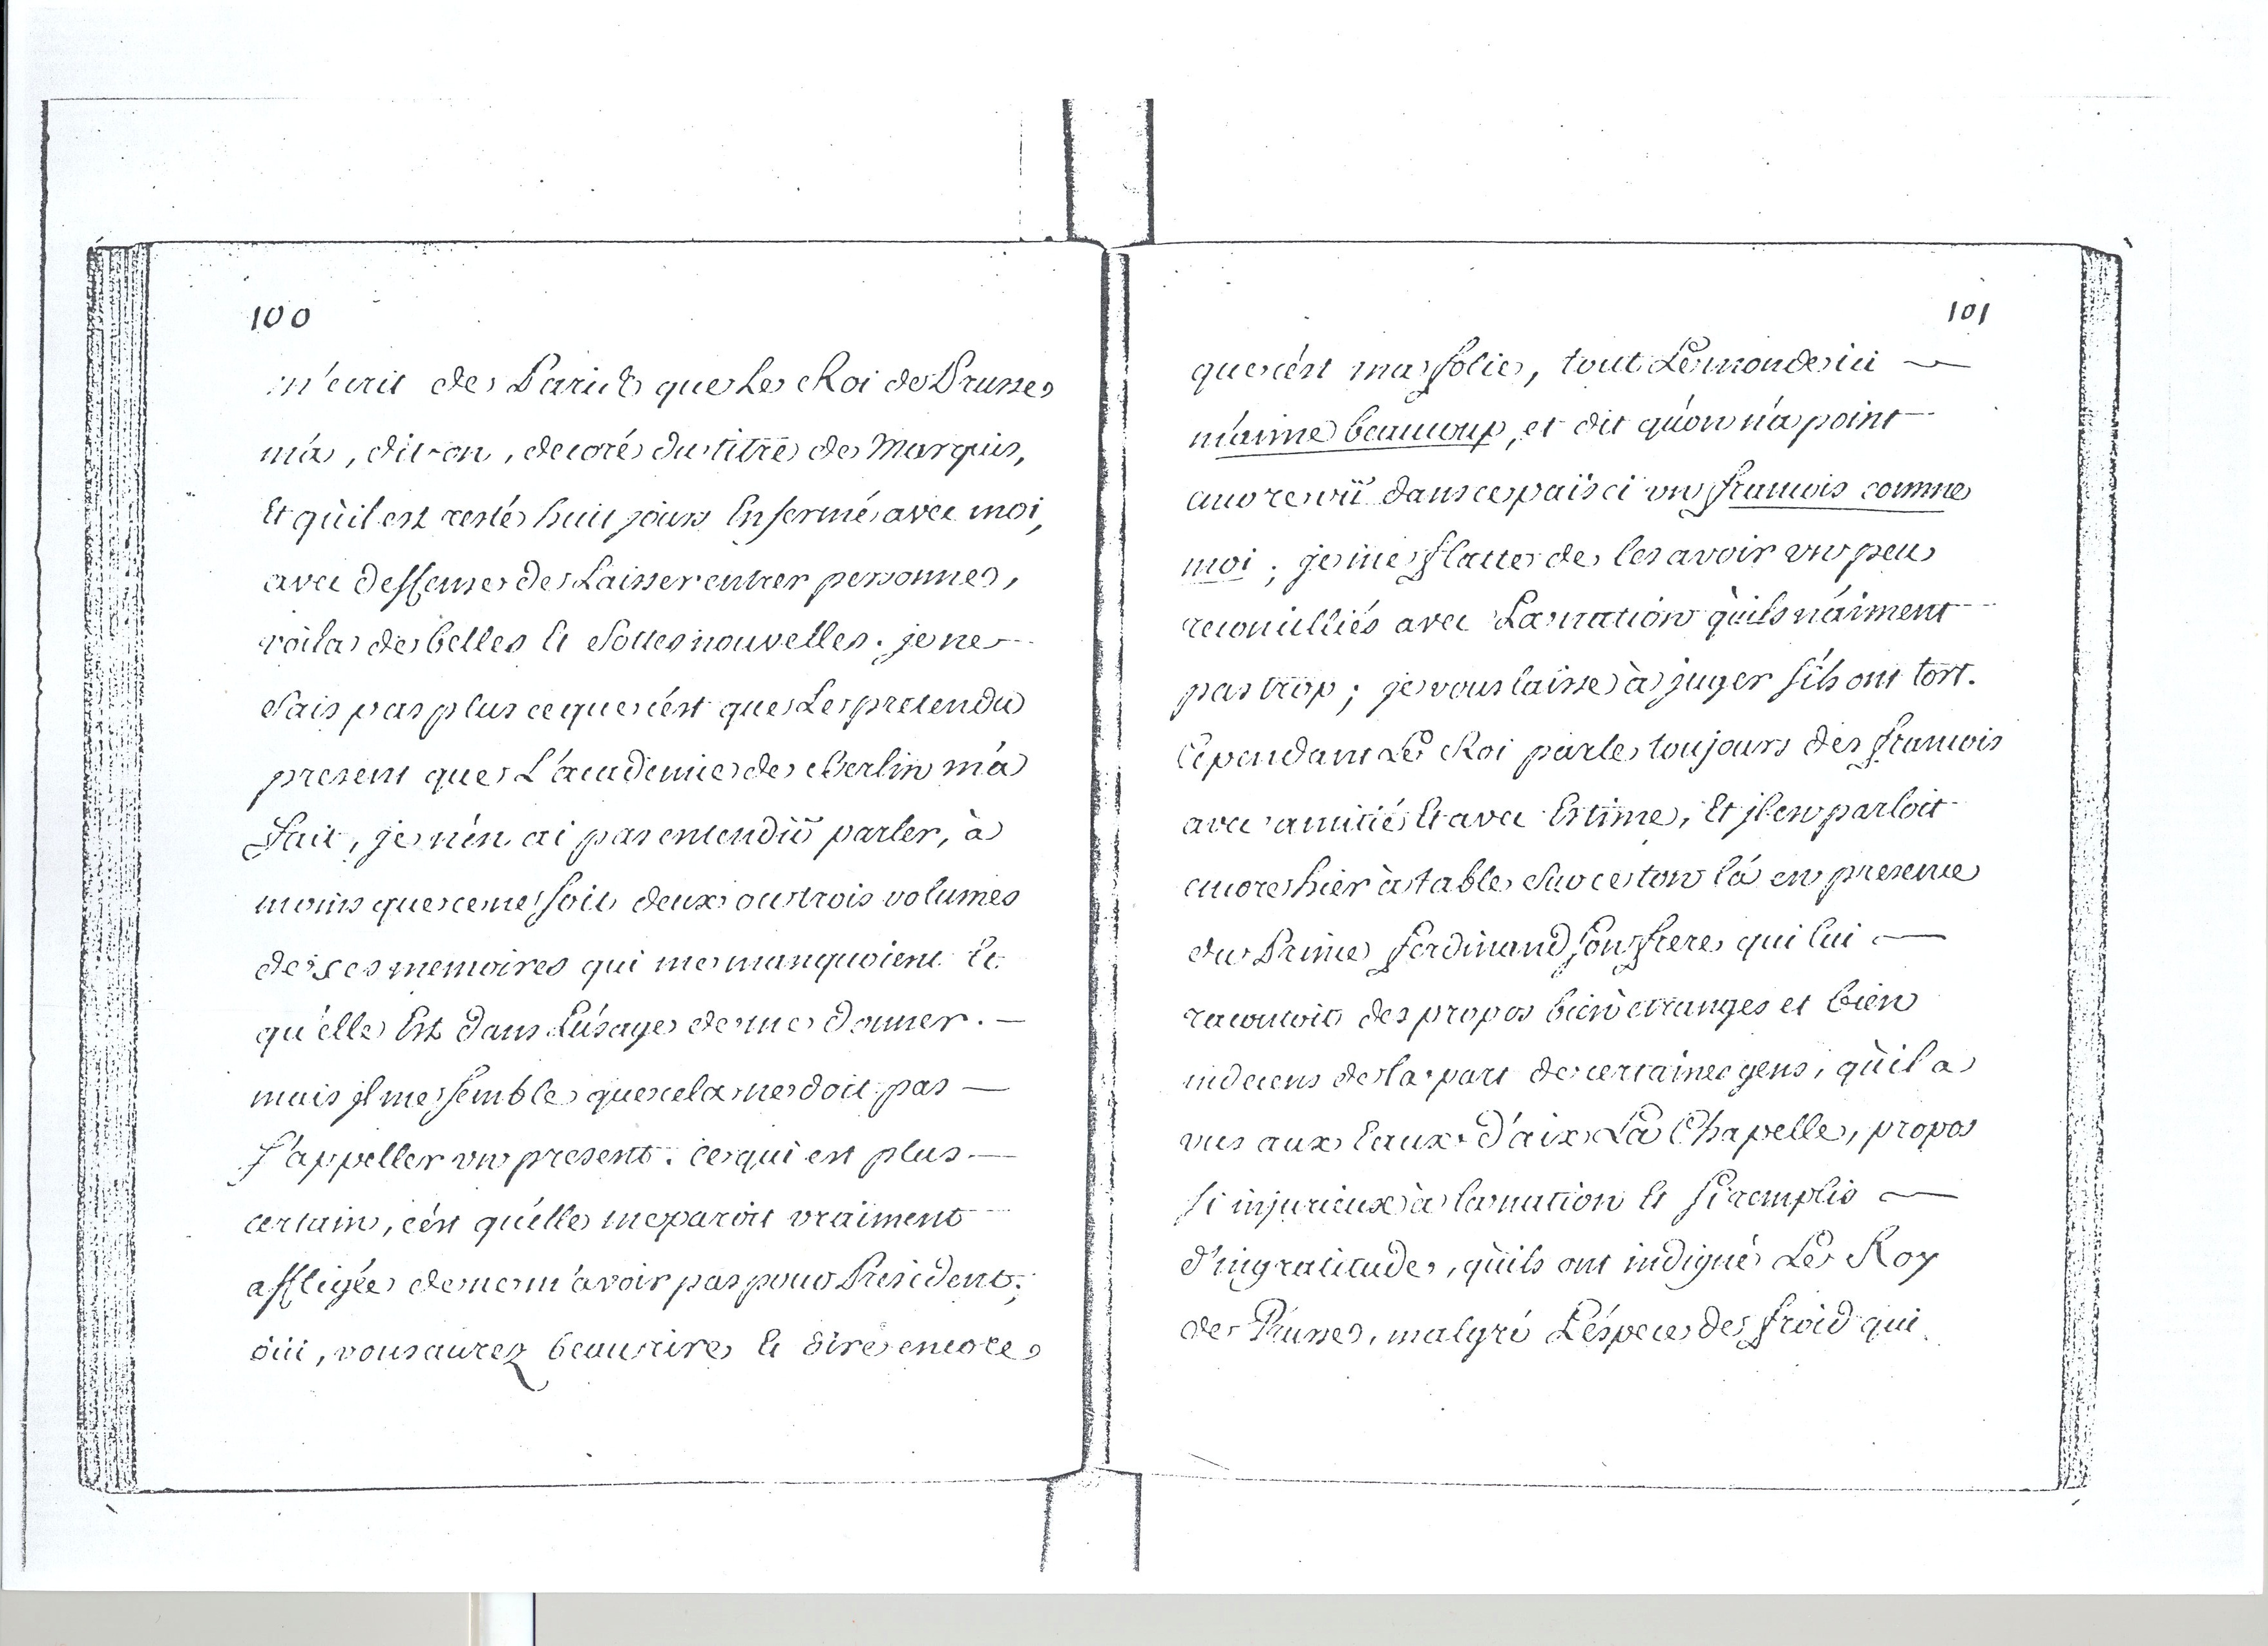 100
m'ecrit de Paris que Le Roi de Prusse
m'a, dit-on, decoré du titre de Marquis,
Et qu'il est resté huit jours Enfermé avec moi,
avec deffense de Laisser entrer personne,
voila de belles Et sottes nouvelles. je ne
sais pas plus ce que c'est que Le pretendu
present que L'academie de Berlin m'a
fait, je n'en ai pas entendu parler, à
moins que ce ne soit deux ou trois volumes
de ses memoires qui me manquoient Et
qu'elle Est dans L'usage de me donner. —
mais il me semble que cela ne doit pas —
s'appeller un present. ce qui est plus —
certain, c'est qu'elle me paroit vraiment
affligée de ne m'avoir pas pour President;
oüi, vous aurez beau rire Et dire encore
101
que c'est ma folie, tout Le monde ici —
m'aime beaucoup, et dit qu'on n'a point
encore vü dans ce païs ci un francois comme
moi; je me flatte de les avoir un peu
reconcilliés avec La nation qu'ils n'aiment
pas trop; je vous laisse à juger s'ils ont tort.
Cependant Le Roi parle toujours des francois
avec amitié Et avec Estime, Et il en parloit
encore hier à table sur ce ton là en presence
du Prince ferdinand son frere qui lui —
racontoit des propos bien etranges et bien
indecens de la part de certaines gens, qu'il a
vus aux Eaux d'aix La Chapelle, propos
si injurieux à la nation Et si remplis —
d'ingratitude, qu'ils ont indigné Le Roy
de Prusse, malgré L'espece de froid qui